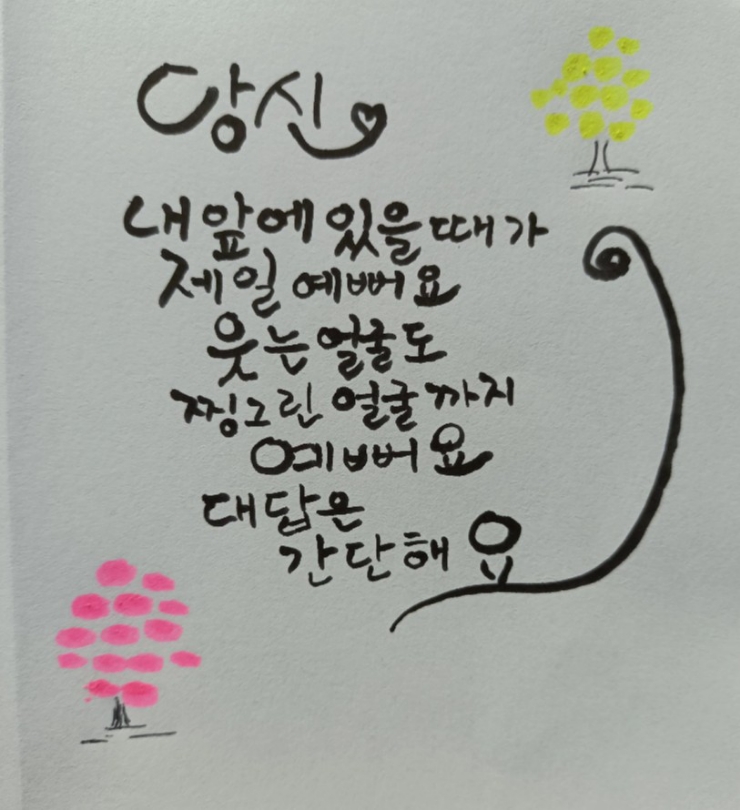 당신
내 앞에 있을 때가
제일 예뻐요
웃는 얼굴도
찡그린 얼굴까지
예뻐요
대답은
간단해요